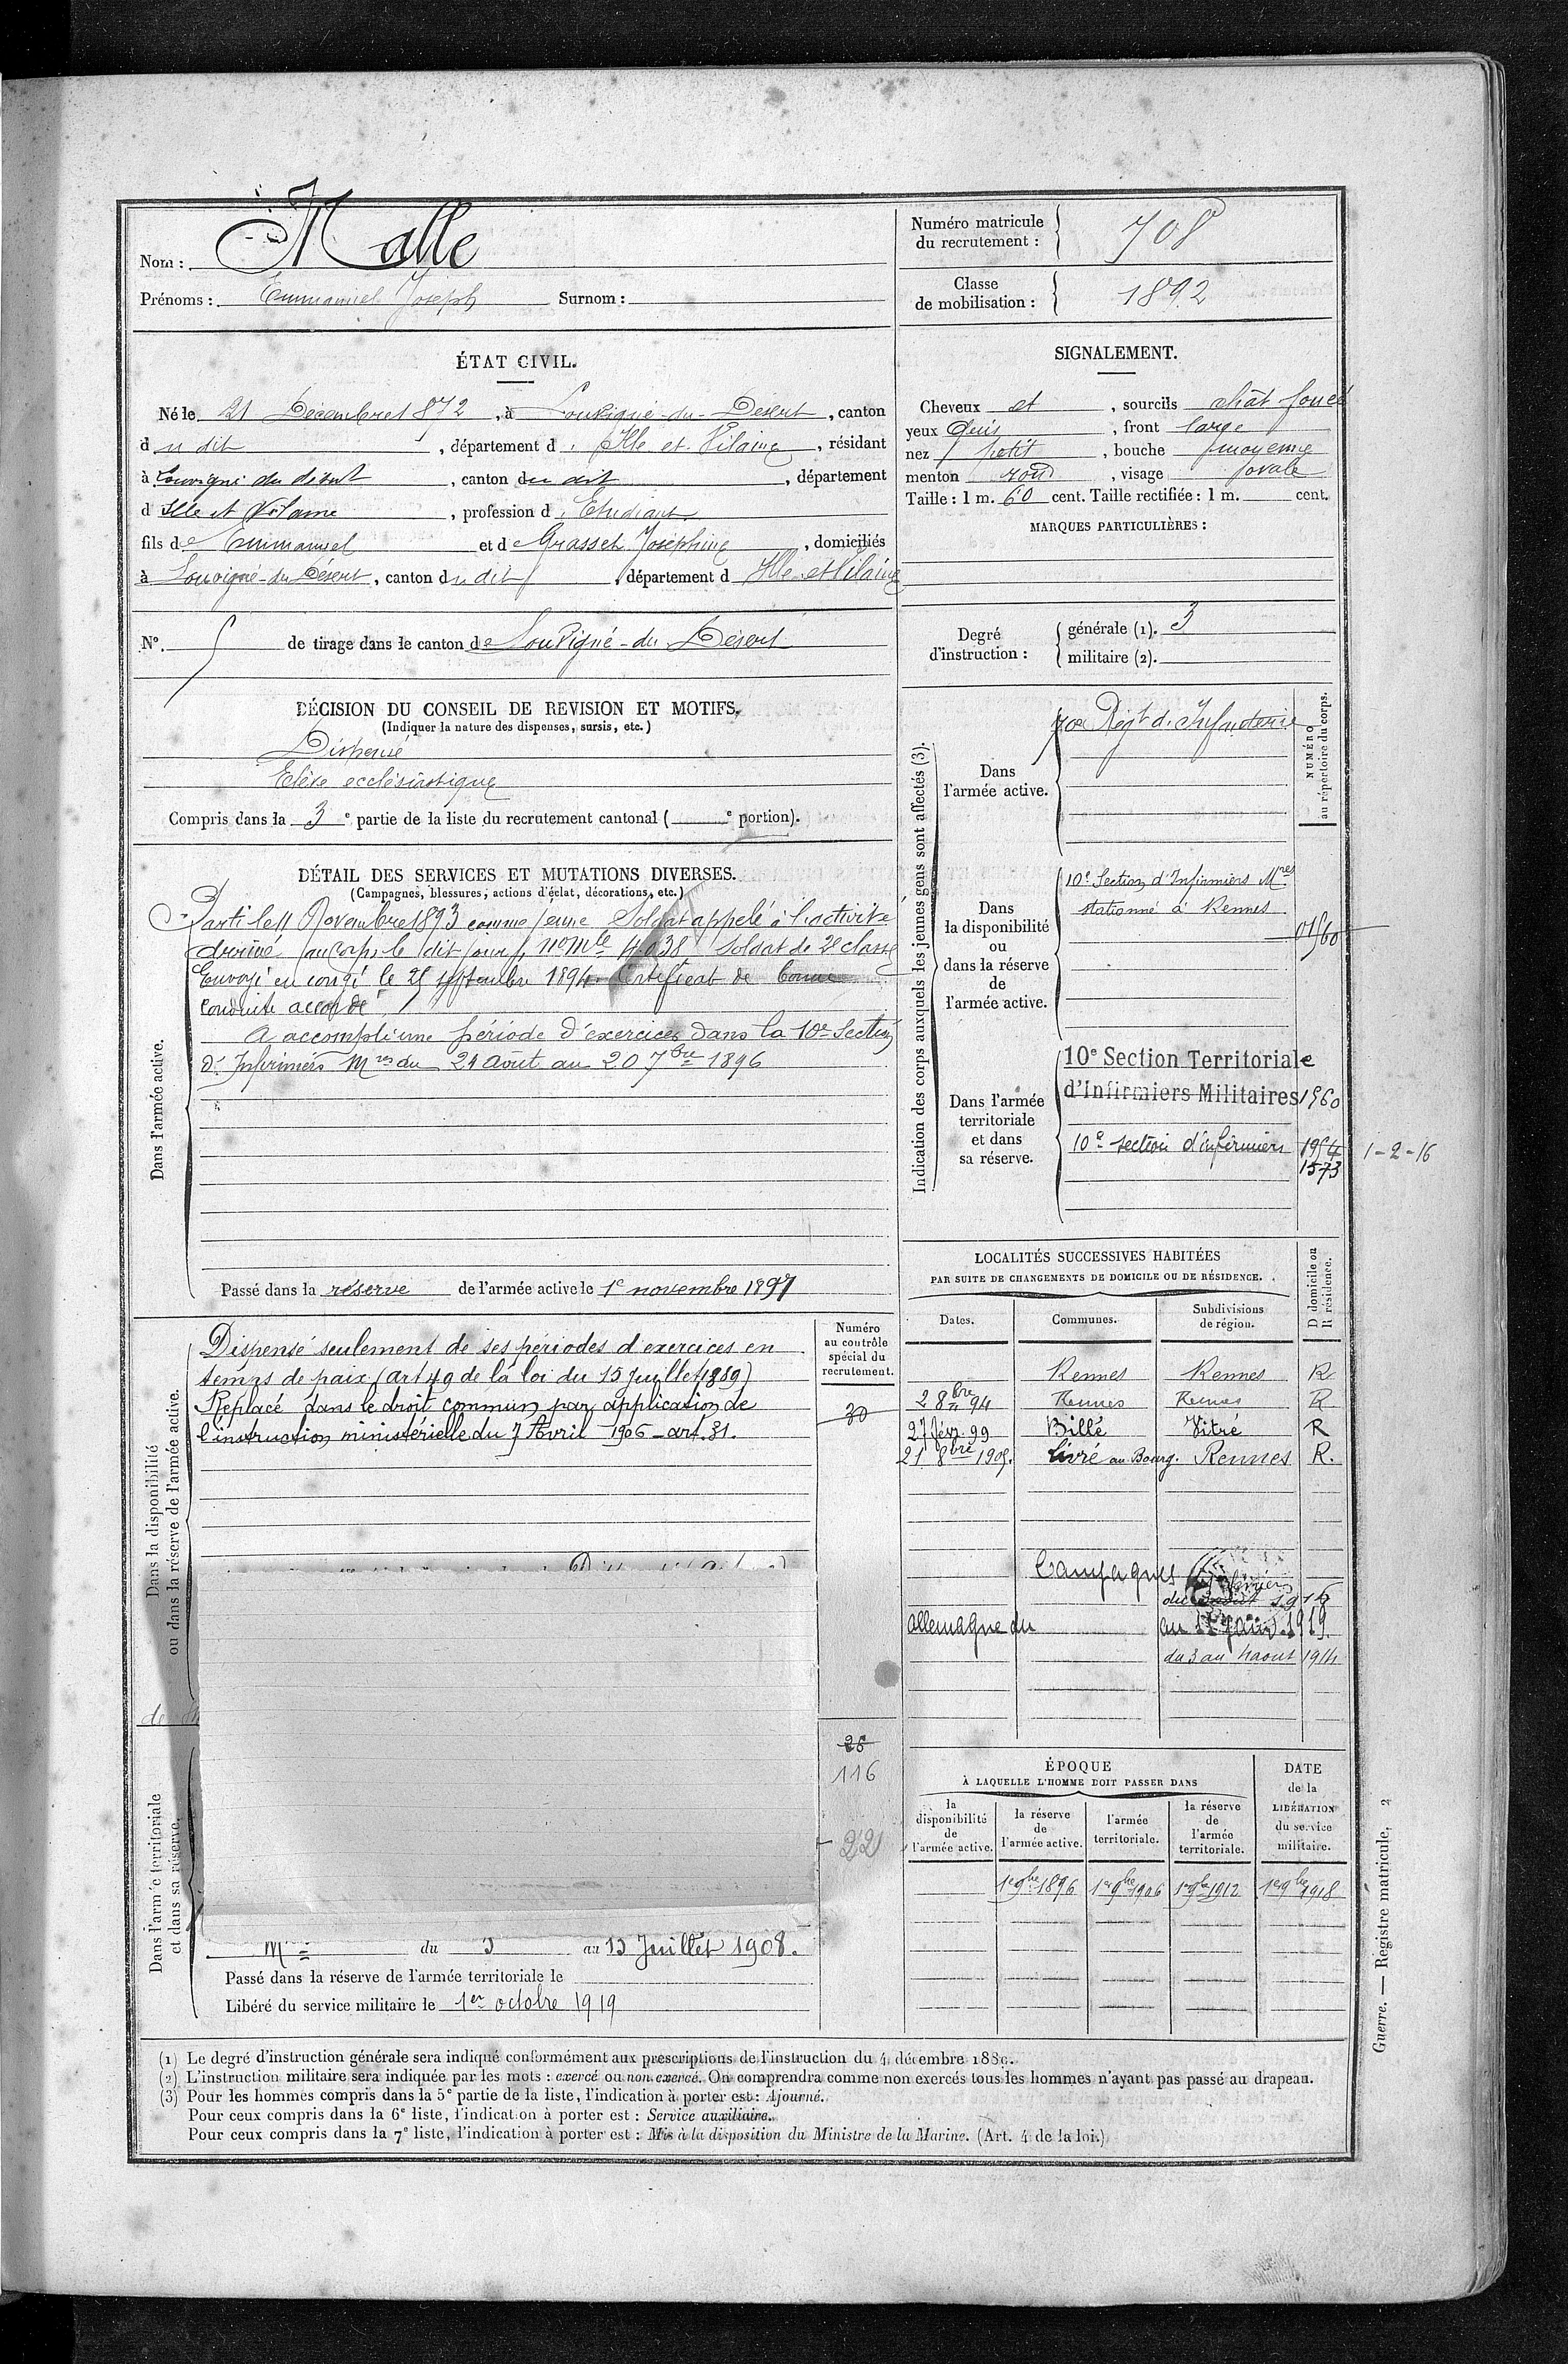 Nom : Malle
Prénoms : Emmanuel Joseph Surnom :
Numéro matricule du recrutement : 708
Classe de mobilisation : 1892
ÉTAT CIVIL.
Né le 21 Décembre 1872, à Louvigné-du-Désert, canton
du dit, département d'Ille-et-Vilaine, résidant
à Louvigné du désert, canton du dit, département
d'Ille et Vilaine, profession d'Etudiant
fils de Emmanuel et de Grasset Joséphine, domiciliés
à Louvigné-du-Désert, canton du dit, département d Ille-et-Vilaine
N° 5 de tirage dans le canton de Louvigné-du-Désert
DÉCISION DU CONSEIL DE REVISION ET MOTIFS.
(Indiquer la nature des dispenses, sursis, etc.)
Dispensé
Elève ecclésiastique
Compris dans la 3e partie de la liste du recrutement cantonal ( e portion).
DÉTAIL DES SERVICES ET MUTATIONS DIVERSES.
(Campagnes, blessures, actions d'éclat, décorations, etc.)
Dans l'armée active.
Parti le 11 Novembre 1893 comme jeune Soldat appelé à l'activité
arrivé au Corps le dit jour, no Mle 4.038 Soldat de 2e classe
Envoyé en congé le 25 septembre 1894. Certificat de bonne
conduite accordé.
A accompli une période d'exercices dans la 10e Section
d'Infirmiers Mres du 24 Août au 20 7bre 1896
Passé dans la réserve de l'armée active le 1e novembre 1897
Dans la disponibilité
ou dans la réserve de l'armée active.
Dispensé seulement de ses périodes d'exercices en
temps de paix (art 49 de la loi du 15 juillet 1889)
Replacé dans le droit commun par application de
l'instruction ministérielle du 7 Avril 1906 - art. 31.
Numéro
au contrôle
spécial du
recrutement.
30
26
116
22
Dans l'armée territoriale
et dans sa réserve.
du 3 au 15 Juillet 1908.
Passé dans la réserve de l'armée territoriale le
Libéré du service militaire le 1er octobre 1919
SIGNALEMENT.
Cheveux et, sourcils chât foncé
yeux Gris, front large
nez petit, bouche moyenne
menton rond, visage ovale
Taille : 1 m. 60 cent. Taille rectifiée : 1 m. cent.
MARQUES PARTICULIÈRES :
Degré d'instruction :
générale (1). 3
militaire (2).
Indication des corps auxquels les jeunes gens sont affectés (3).
NUMÉRO
au répertoire du corps.
Dans
l'armée active.
70e Régt d'Infanterie
Dans
la disponibilité
ou
dans la réserve
de
l'armée active.
10e Section d'Infirmiers Mres
stationné à Rennes
Dans l'armée
territoriale
et dans
sa réserve.
10e Section Territoriale
d'Infirmiers Militaires 1960
10e section d'infirmiers 1954 1-2-16
1573
LOCALITÉS SUCCESSIVES HABITÉES
PAR SUITE DE CHANGEMENTS DE DOMICILE OU DE RÉSIDENCE.
D domicile ou
R résidence.
Dates. Communes. Subdivisions de région.
Rennes Rennes R
2 8bre 94 Rennes Rennes R
27 févr. 99 Billé Vitré R
21 8bre 1905. Livré au Bourg. Rennes R.
Campagnes
allemagne du
au 11 janv. 1919.
du 3 au 4 aout 1914
ÉPOQUE
À LAQUELLE L'HOMME DOIT PASSER DANS
DATE
de la
LIBÉRATION
du service
militaire.
la
disponibilité
de
l'armée active.
la réserve
de
l'armée active.
l'armée
territoriale.
la réserve
de
l'armée
territoriale.
1er 9bre 1896 1er 9bre 1906 1er 9bre 1912 1er 9bre 1918
(1) Le degré d'instruction générale sera indiqué conformément aux prescriptions de l'instruction du 4 décembre 1889.
(2) L'instruction militaire sera indiquée par les mots : exercé ou non exercé. On comprendra comme non exercés tous les hommes n'ayant pas passé au drapeau.
(3) Pour les hommes compris dans la 5e partie de la liste, l'indication à porter est : Ajourné.
Pour ceux compris dans la 6e liste, l'indication à porter est : Service auxiliaire.
Pour ceux compris dans la 7e liste, l'indication à porter est : Mis à la disposition du Ministre de la Marine. (Art. 4 de la loi.)
Guerre. — Registre matricule, 2